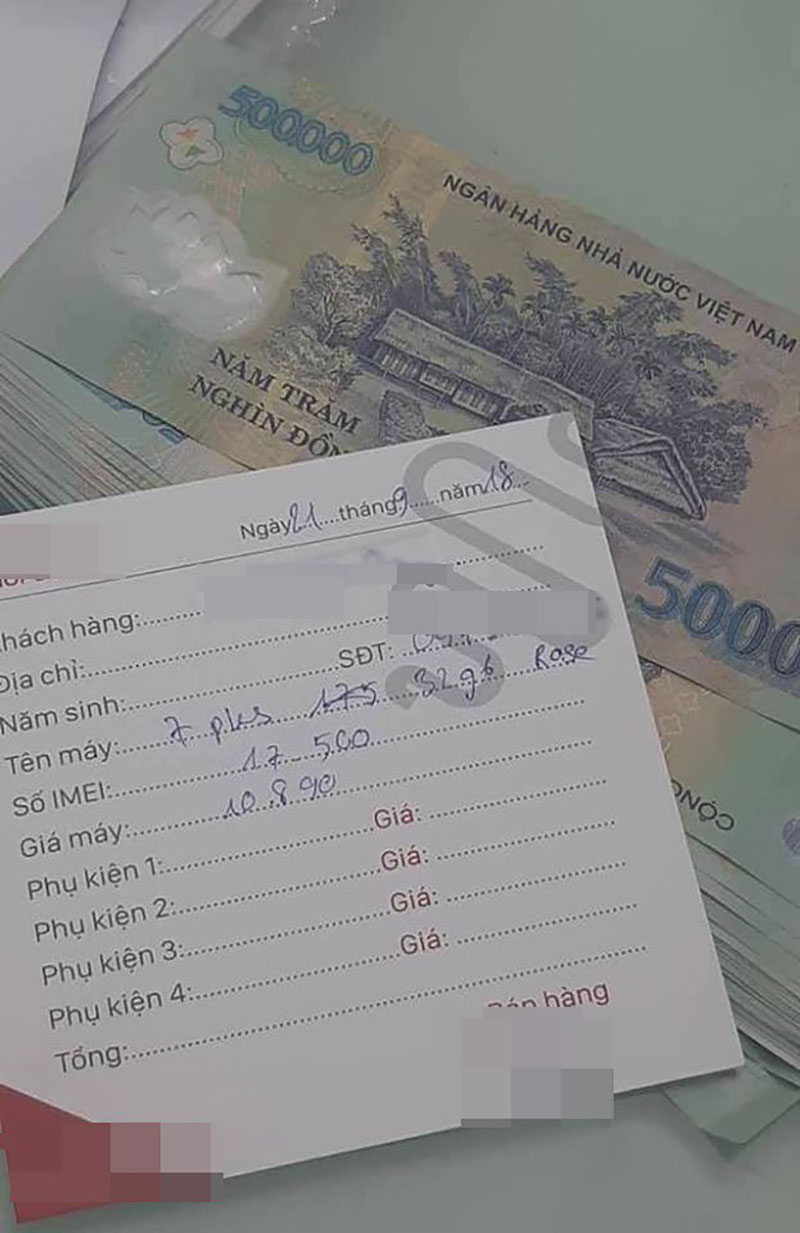 500000
NGÂN HÀNG NHÀ NƯỚC VIỆT NAM
NĂM TRĂM
NGHÌN ĐỒN
5000
Ngày 21 tháng 9 năm 18
hách hàng:
Địa chỉ:
Năm sinh: SĐT:
Tên máy: 7 plus 32gb Rose
Số IMEI: 17 500
Giá máy: 10.890
Phụ kiện 1: Giá:
Phụ kiện 2: Giá:
Phụ kiện 3: Giá:
Phụ kiện 4: Giá:
Tổng:
Bán hàng
CỘNG